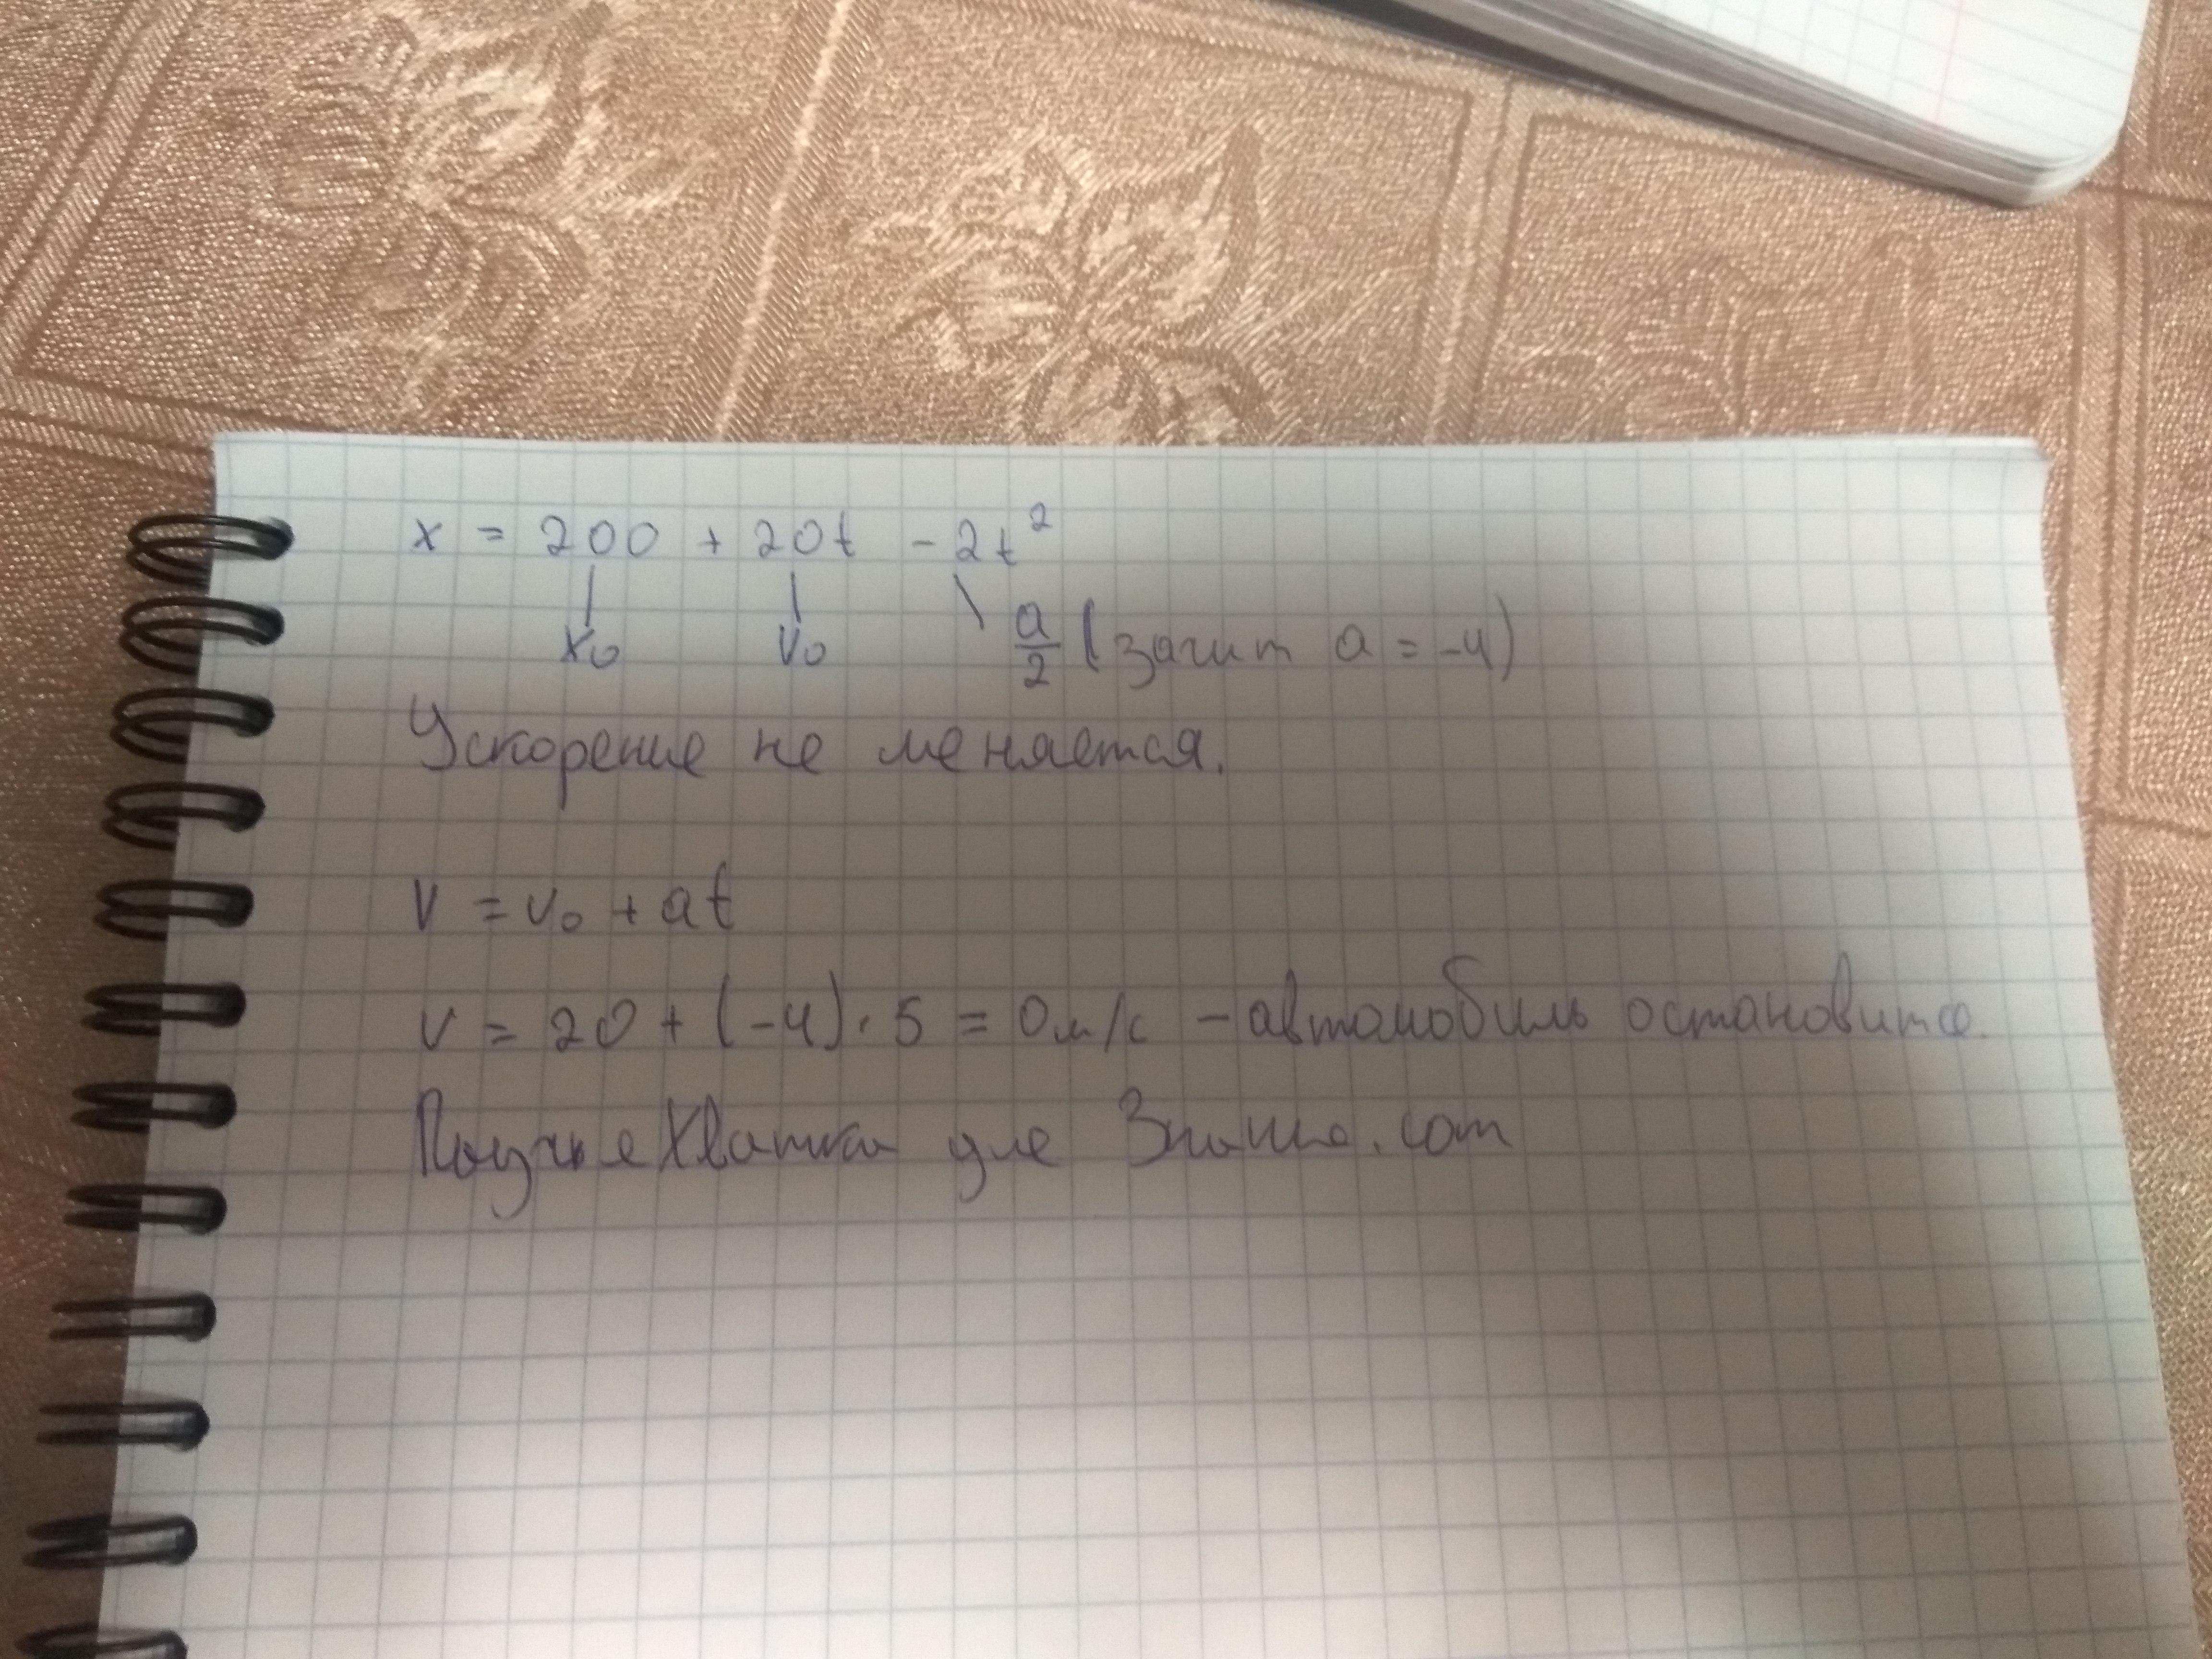 x = 200 + 20t - 2t²
x₀ v₀ a/2 (зачит a = -4)
Ускорение не меняется.
v = v₀ + at
v = 20 + (-4) · 5 = 0 м/с - автомобиль остановится.
для Знания.com